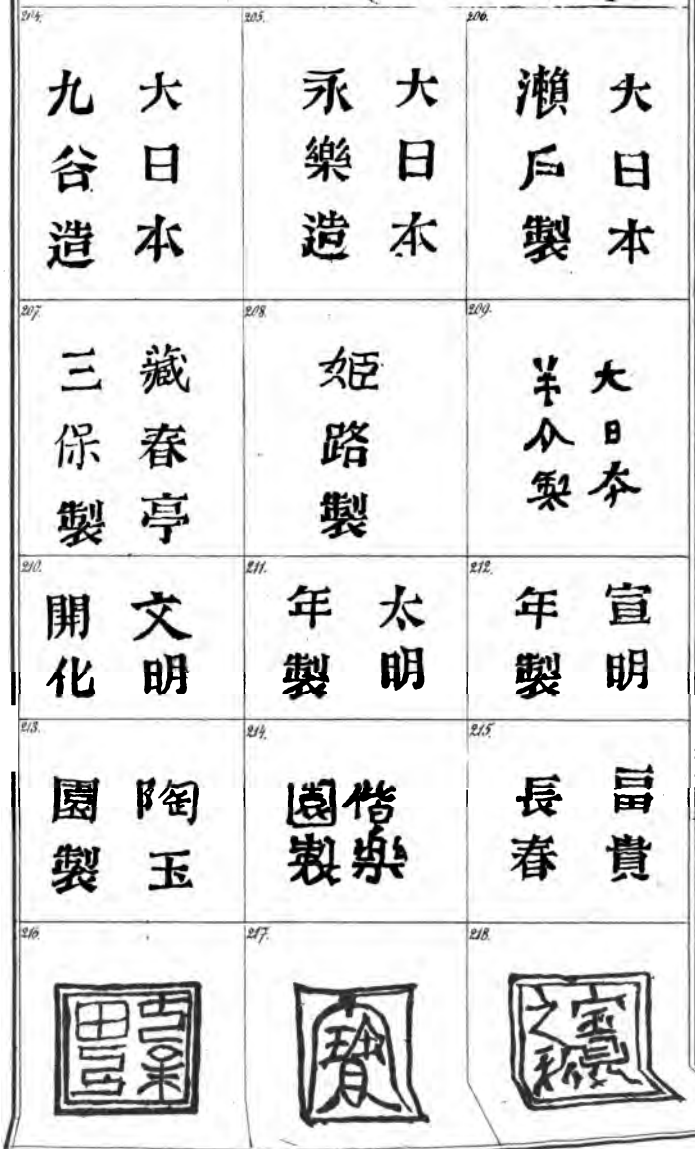 204.
大日本
九谷造
205.
大日本
永樂造
206.
大日本
瀨戸製
207.
藏春亭
三保製
208.
姫路製
209.
大日本
半介製
210.
文明
開化
211.
太明
年製
212.
宣明
年製
213.
陶玉
園製
214.
偕樂
園製
215.
冨貴
長春
216.
217.
218.